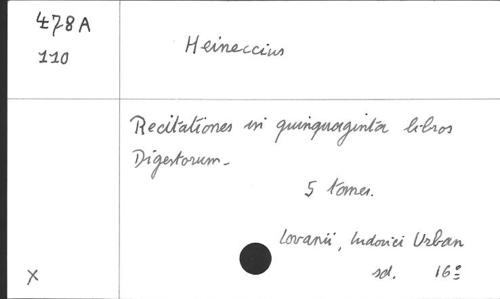 478A
110
Heineccius
Recitationes in quinquaginta libros
Digestorum.
5 tomes.
Lovanii, Ludovici Urban
sd. 16º
X